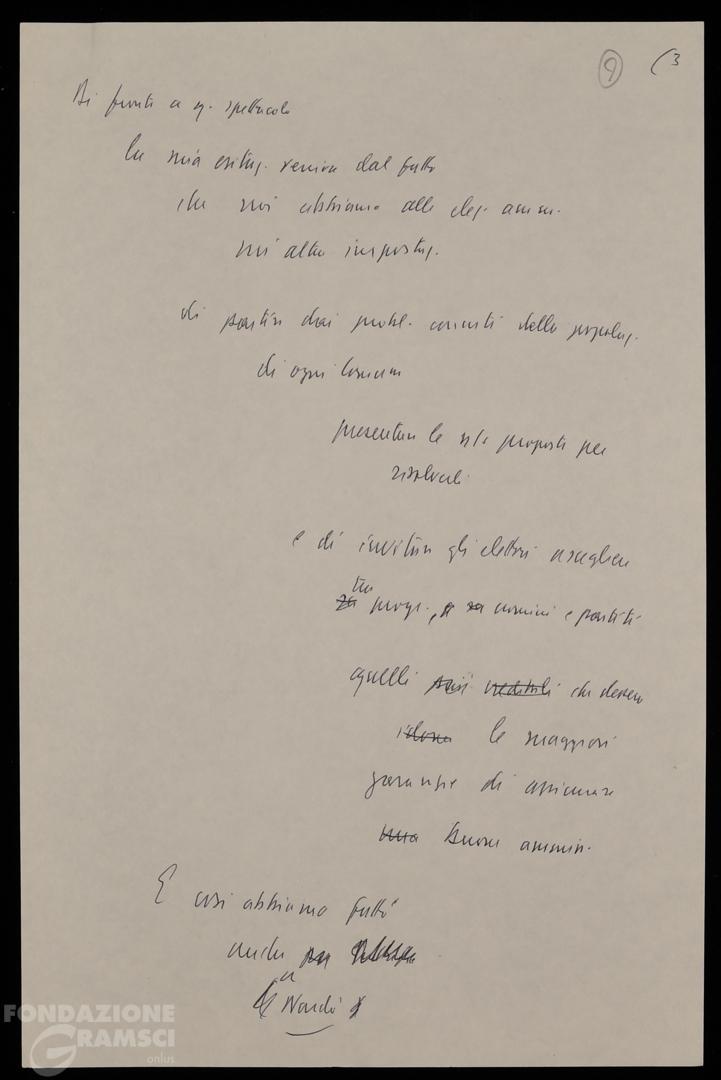 9 (3
Di fronte a q. spettacolo
la mia esitaz. veniva dal fatto
che noi abbiamo alle elez. amm.
un'altra impostaz.
di partire dai probl. concreti della popolaz.
di ogni Comune
presentare le n/s proposte per
risolverli
e di invitare gli elettori a scegliere
tra
progr., uomini e partiti
quelli più credibili che dessero
idonea le maggiori
garanzie di assicurare
una buona ammin.
E così abbiamo fatto
anche
a Nardò
FONDAZIONE
GRAMSCI
onlus